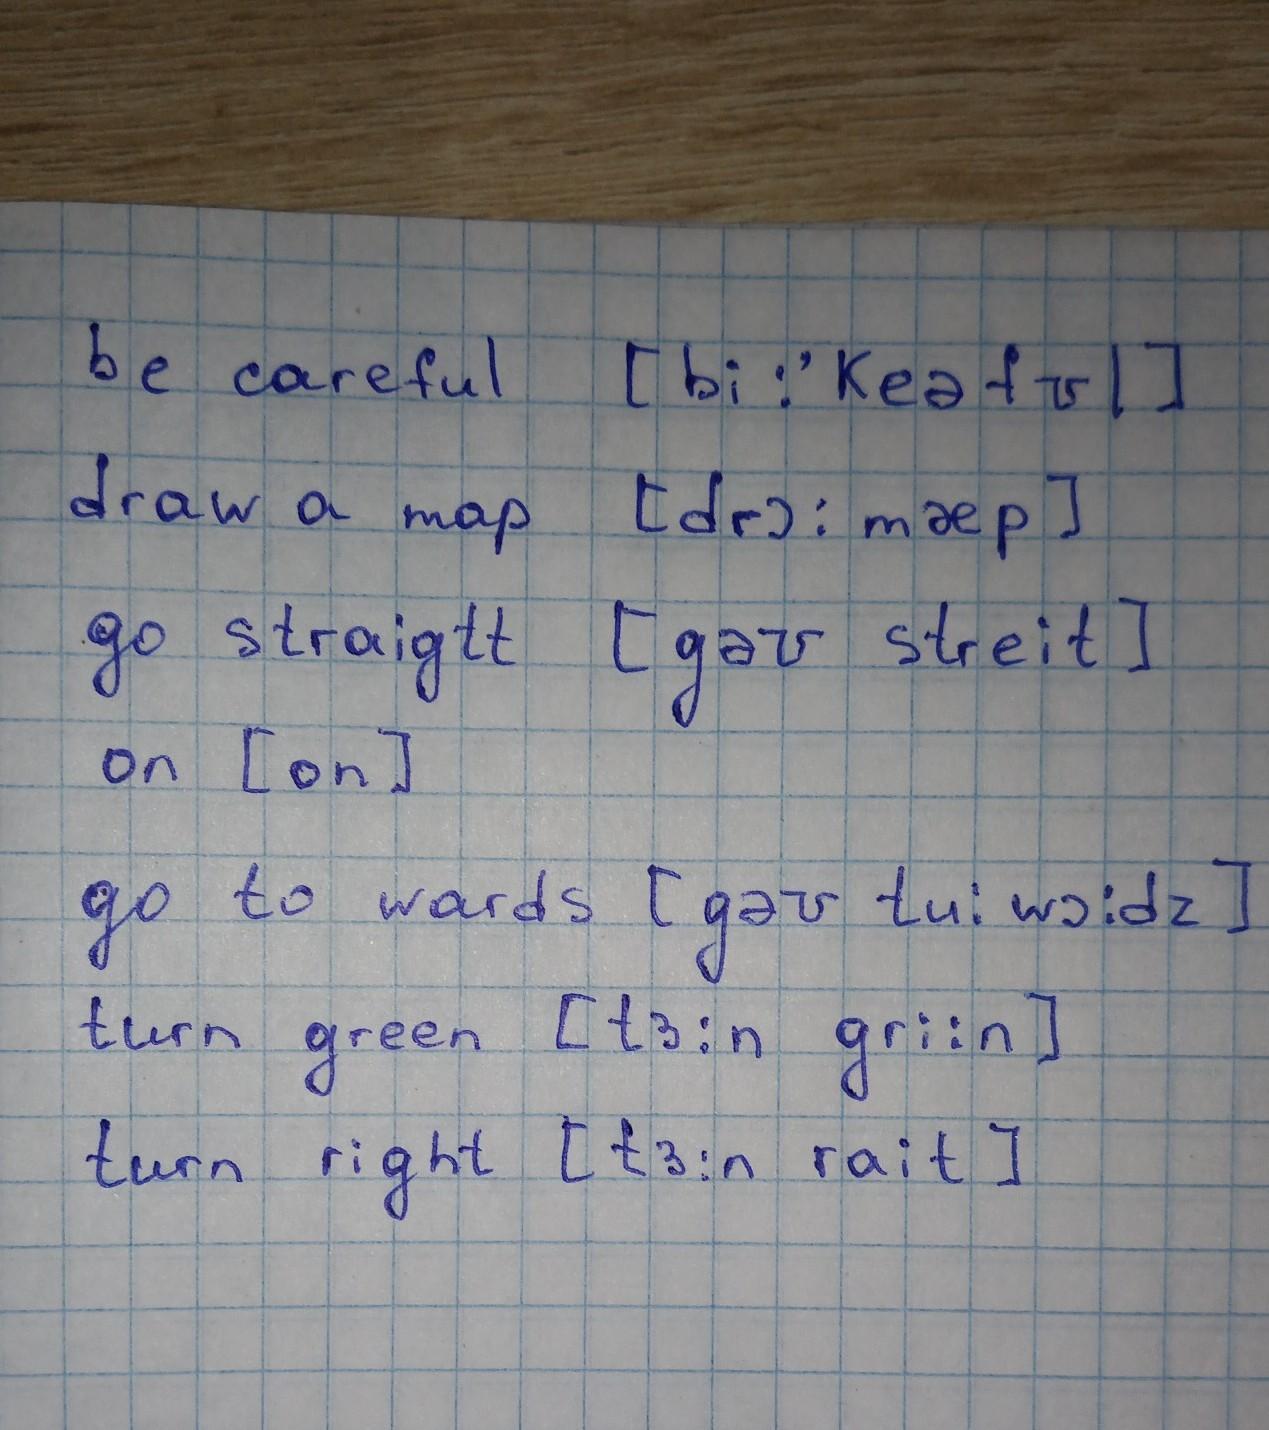 be careful [bi:'Keəfʊl]
draw a map [drɔ: mæp]
go straigtt [gəʊ streit]
on [on]
go to wards [gəʊ tu: wɔ:dz]
turn green [tɜ:n gri:n]
turn right [tɜ:n rait]